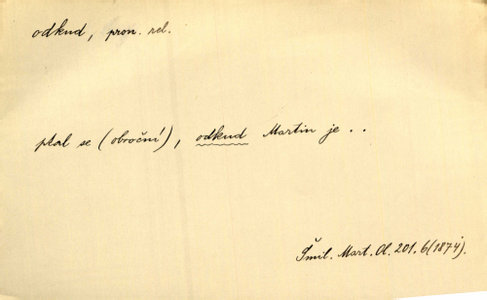 odkud, pron. rel.
ptal se (obroční), odkud Martin je . .
Šmil. Mart. Ol. 201. 6 (1874).